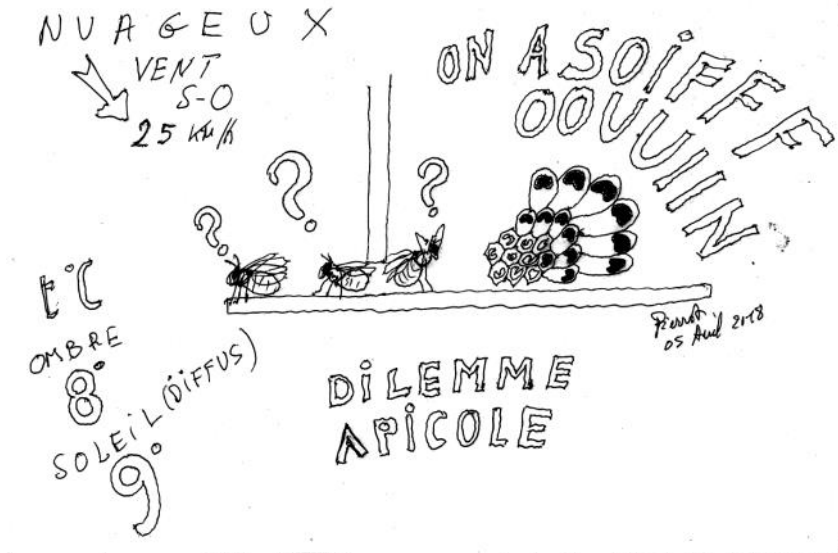 NUAGEUX
VENT
S-O
25 KM/h
ON A SOiFFF
OOUUIN
?
?
?
t°C
OMBRE
8°
SOLEiL (DiFFUS)
9°
Pierrot
05 Avril 2018
DiLEMME
APiCOLE